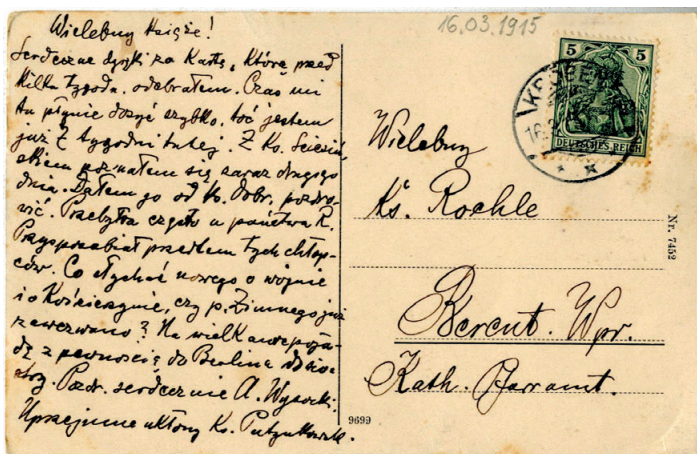 16.03.1915
Wielebny Księże!
Serdeczne dzięki za Kartę, którą przed
kilku tygodn. odebrałem. Czas mi
tu płynie dosyć szybko, toć jestem
już 7 tygodni tutaj. Z Ks.
poznałem się zaraz drugiego
dnia. Dałem go od Ks. Dobr. pozdro-
wić. Przebywa często u państwa R.
Przysposabiał przedtem tych chłop-
ców. Co słychać nowego o wojnie
i o Kościerzynie, czy p. Zimnego już
zawezwano? Na wielkanoc poja-
dę z pewnością do Berlina do
Pozdr. serdecznie A. Wysocki.
Uprzejme ukłony Ks.
5 5
DEUTSCHES REICH
KRÖBEN
16.3
Wielebny
Ks. Roehle
Berent. Wpr.
Kath. Pfarramt.
Nr. 7452
9699